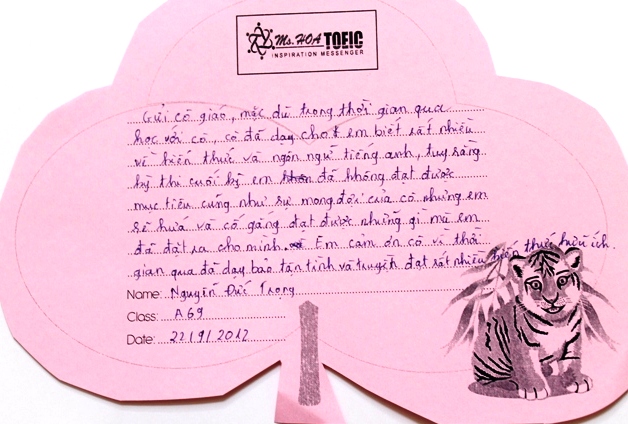 Ms. HOA TOEIC
INSPIRATION MESSENGER
Gửi cô giáo, mặc dù trong thời gian qua
học với cô, cô đã dạy cho em biết rất nhiều
về kiến thức và ngôn ngữ tiếng anh, tuy rằng
kỳ thi cuối kỳ em đã không đạt được
mục tiêu cũng như sự mong đợi của cô nhưng em
sẽ hứa và cố gắng đạt được những gì mà em
đã đặt ra cho mình. Em cảm ơn cô vì thời
gian qua đã dạy bảo tận tình và truyền đạt rất nhiều kiến thức hữu ích.
Name: Nguyễn Đức Trọng
Class: A69
Date: 22/9/2012